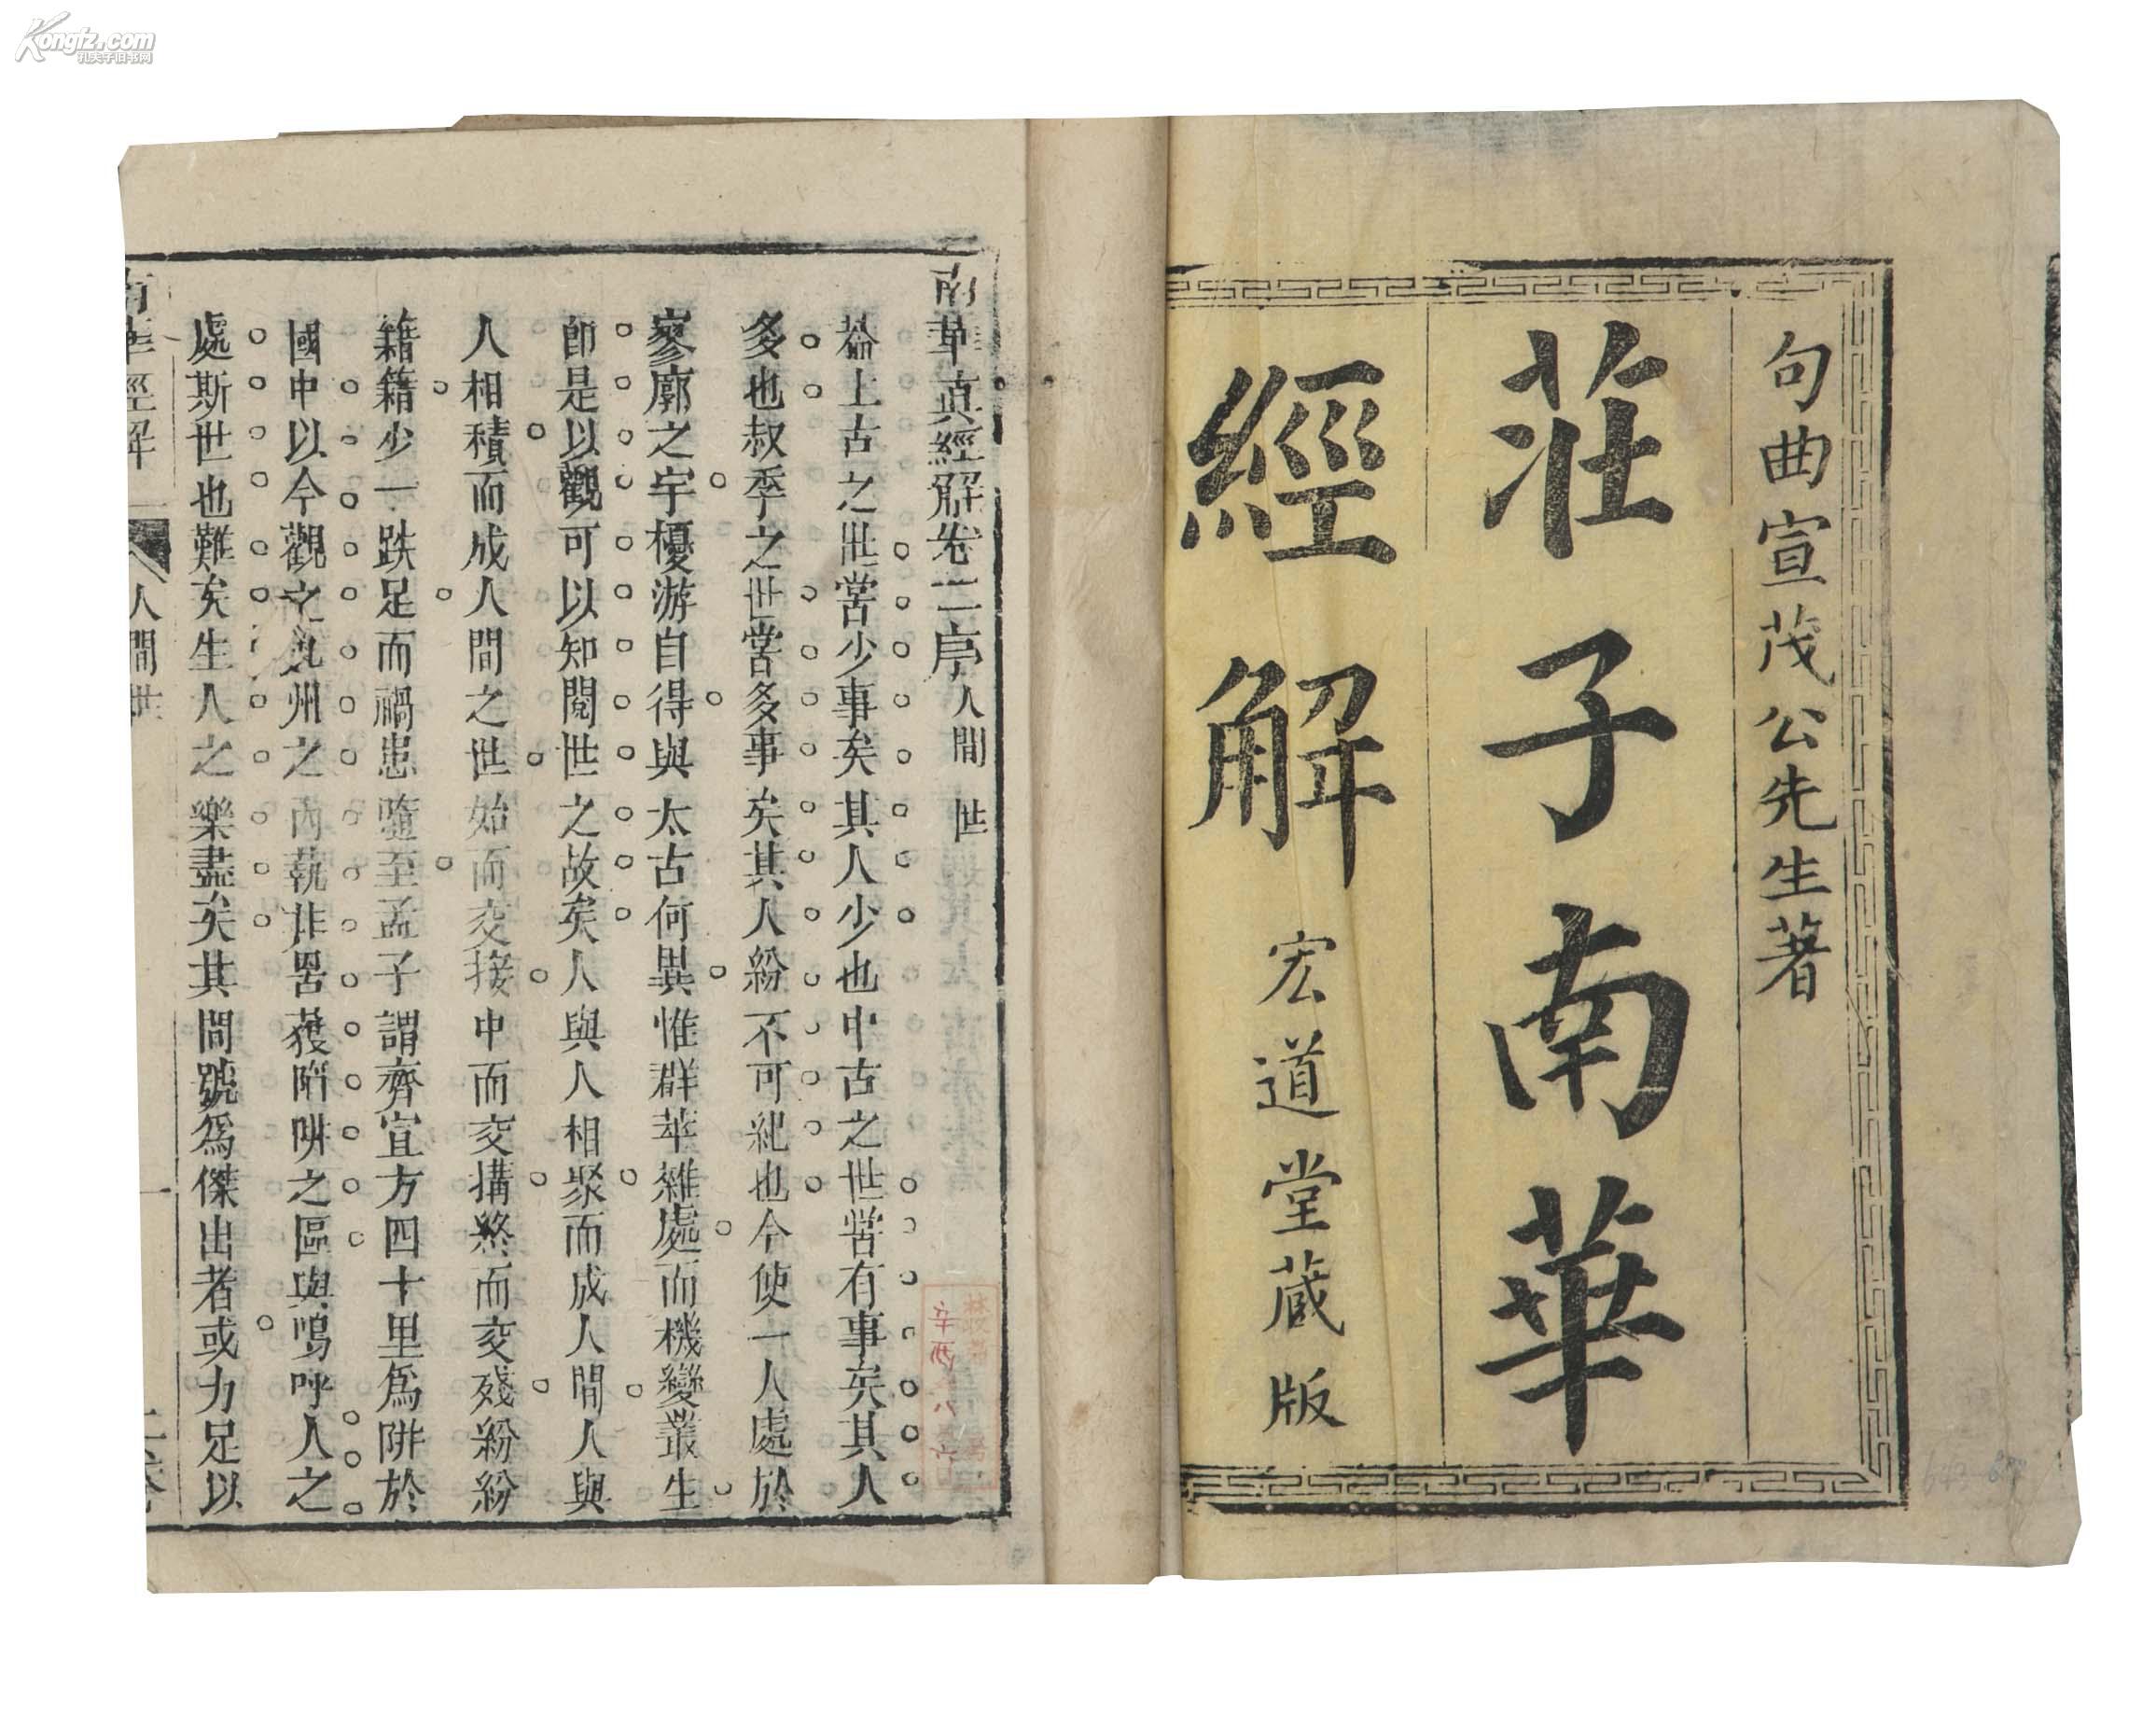 Kongfz.com
孔夫子旧书网
句曲宣茂公先生著
莊子南華
經解
宏道堂藏版
南華真經解卷二序 人間世
葢上古之世甞少事矣其人少也中古之世甞有事矣其人
多也叔季之世甞多事矣其人紛不可紀也今使一人處於
寥廓之宇優游自得與太古何異惟群萃雜處而機變叢生
即是以觀可以知閱世之故矣人與人相聚而成人間人與
人相積而成人間之世始而交接中而交搆終而交殘紛紛
籍籍少一跌足而禍患隨至孟子謂齊宣方四十里爲阱於
國中以今觀之九州之內孰非罟獲陷阱之區與嗚呼人之
處斯世也難矣生人之樂盡矣其間號爲傑出者或力足以
南華經解 人間世 一
辛酉